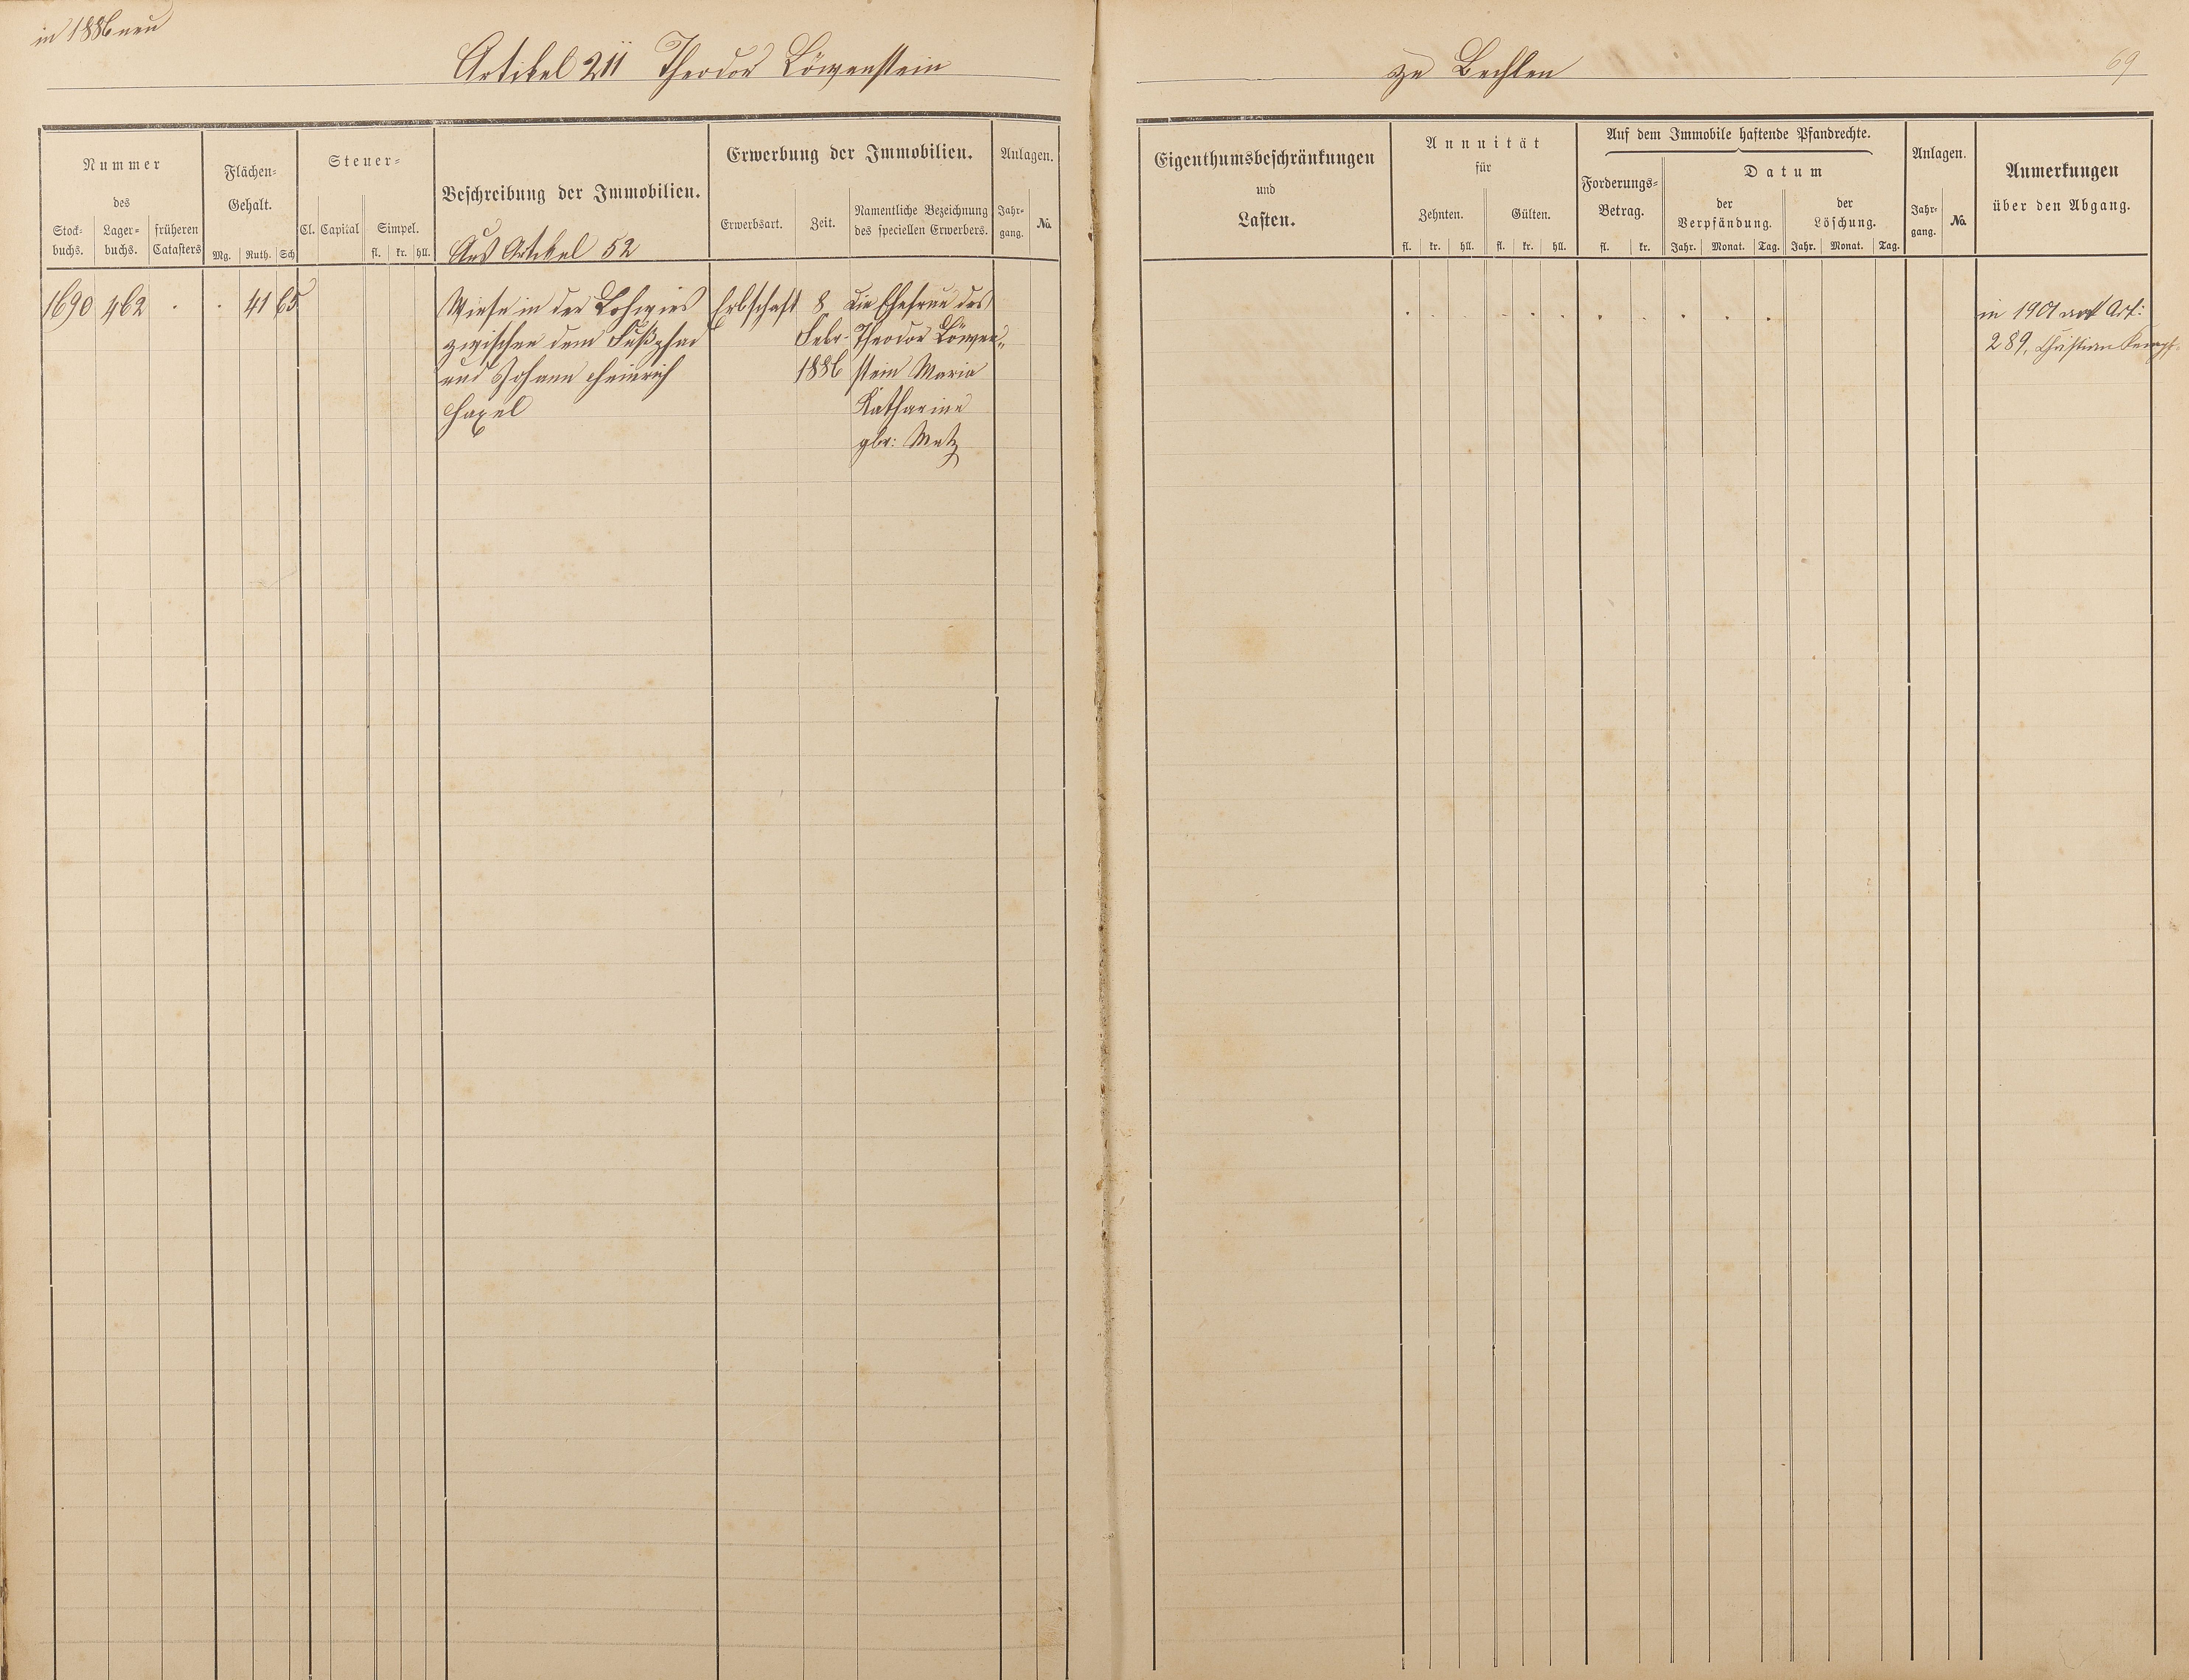 in 1886 neu
Artikel 211 Theodor Löwenstein
Nummer
des
Stock-
buchs.
Lager-
buchs.
früheren
Catasters
Flächen-
Gehalt.
Mg. Ruth. Sch
Steuer-
Cl. Capital Simpel.
fl. kr. hll.
Beschreibung der Immobilien.
Aus Artikel 52
Erwerbung der Immobilien.
Erwerbsart. Zeit.
Namentliche Bezeichnung
des speciellen Erwerbers.
Anlagen.
Jahr-
gang.
No.
1690 462 . . 41 65
Wiese in der Lohwies
zwischen dem Fußpfad
und Johann Heinrich
Haxel
Erbschaft
8
Febr.
1886
die Ehefrau des
Theodor Löwen-
stein Maria
Katharine
gbr: Metz
zu Bechlen
69
Eigenthumsbeschränkungen
und
Lasten.
Annuität
für
Zehnten. Gülten.
fl. kr. hll. fl. kr. hll.
Auf dem Immobile haftende Pfandrechte.
Forderungs-
Betrag.
fl. kr.
Datum
der
Verpfändung.
der
Löschung.
Jahr. Monat. Tag. Jahr. Monat. Tag.
Anlagen.
Jahr-
gang.
No.
Anmerkungen
über den Abgang.
in 1901 auf Art:
289, Christian